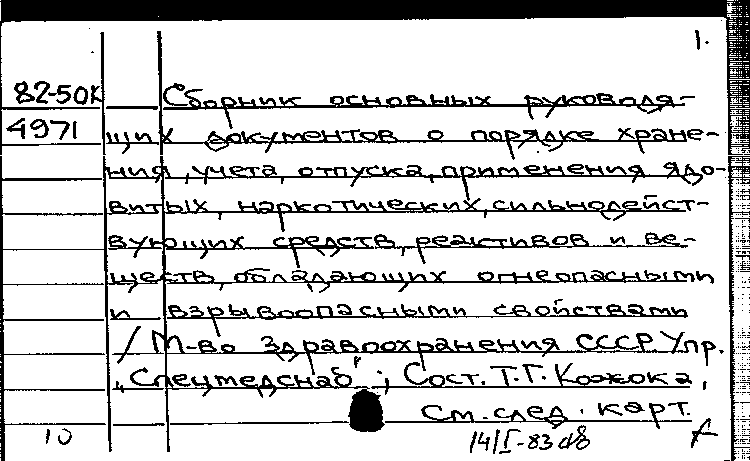 1.
82-50к Сборник основных руководя-
4971 щих документов о порядке хране-
ния, учета, отпуска, применения ядо-
витых, наркотических, сильнодейст-
вующих средств, реактивов и ве-
ществ, обладающих огнеопасными
и взрывоопасными свойствами
/ М-во здравоохранения СССР. Упр.
"Спецмедснаб"; Сост. Т.Г. Кожока,
См. след. карт.
10 14/I-83